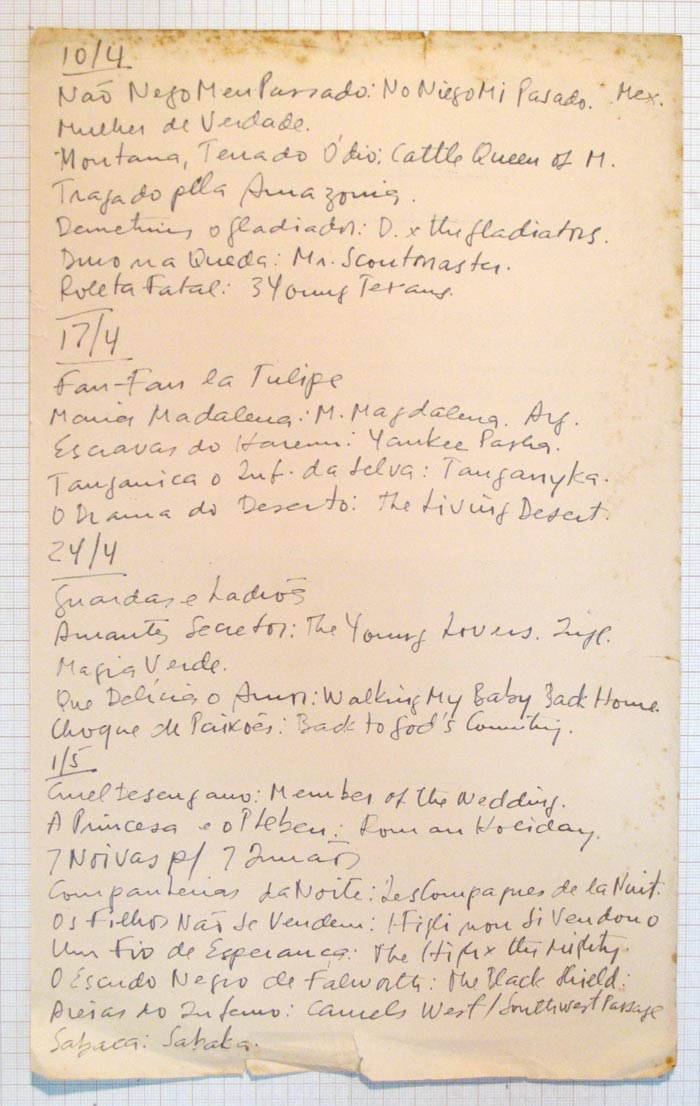 10/4
Não Nego Meu Passado: No Niego Mi Pasado. Mex.
Mulher de Verdade.
Montana, Terra do Ódio: Cattle Queen of M.
Tragado pela Amazonia.
Demetrius o gladiador: D. x the gladiators.
Duro na Queda: Mr. Scoutmaster.
Roleta Fatal: 3 Young Texans.
17/4
Fan-Fan la Tulipe
Maria Madalena: M. Magdalena. Arg.
Escravas do Harem: Yankee Pasha.
Tanganica o Inf. da Selva: Tanganyka.
O Drama do Deserto: The Living Desert.
24/4
Guardas e Ladrões
Amantes Secretos: The Young Lovers. Ingl.
Magia Verde.
Que Delícia o Amor: Walking My Baby Back Home.
Choque de Paixões: Back to God's Country.
1/5
Cruel Desengano: Member of the Wedding.
A Princesa e o Plebeu: Roman Holiday.
7 Noivas p/ 7 Irmãos
Companheiras da Noite: Les Compagnes de la Nuit.
Os Filhos Não Se Vendem: I Figli non Si Vendono
Um Fio de Esperança: The High x the Mighty.
O Escudo Negro de Falworth: The Black Shield:
Areias do Inferno: Camels West/Southwest Passage
Sabaca: Sabaka.